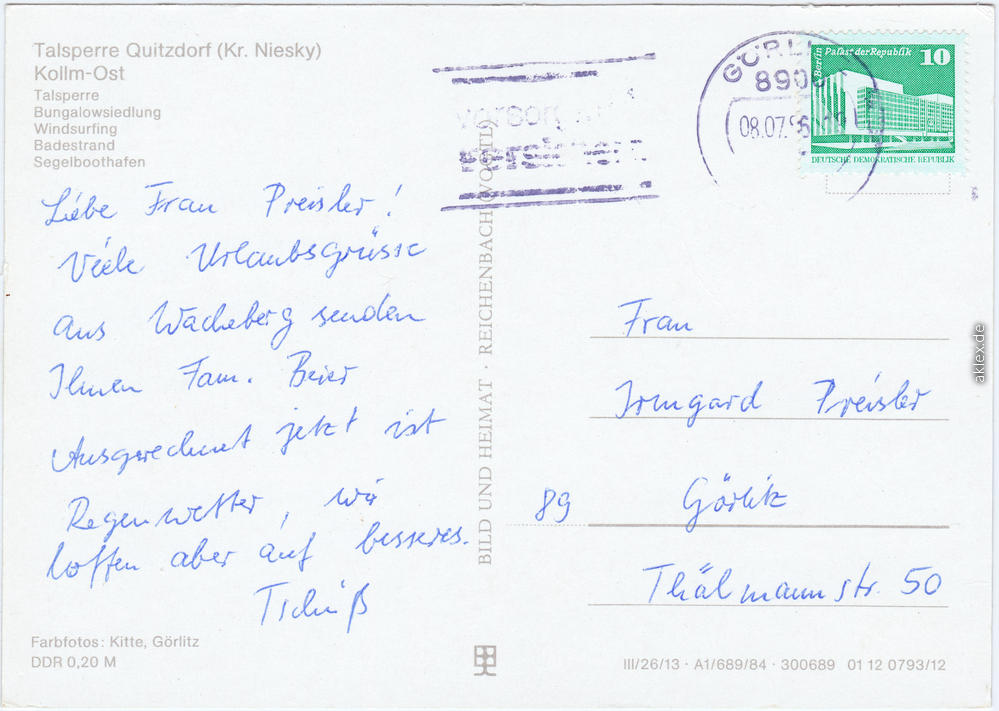 Talsperre Quitzdorf (Kr. Niesky)
Kollm-Ost
Talsperre
Bungalowsiedlung
Windsurfing
Badestrand
Segelboothafen
Liebe Frau Preisler!
Viele Urlaubsgrüsse
aus Wacheberg senden
Ihnen Fam. Beier
Ausgerechnet jetzt ist
Regenwetter, wir
hoffen aber auf besseres.
Tschüß
Farbfotos: Kitte, Görlitz
DDR 0,20 M
BILD UND HEIMAT · REICHENBACH (VOGTL)
GÖRLI
8900
08.07.
Berlin Palast der Republik 10
DEUTSCHE DEMOKRATISCHE REPUBLIK
Frau
Irmgard Preisler
89 Görlitz
Thälmannstr. 50
III/26/13 · A1/689/84 · 300689 01 12 0793/12
aklex.de